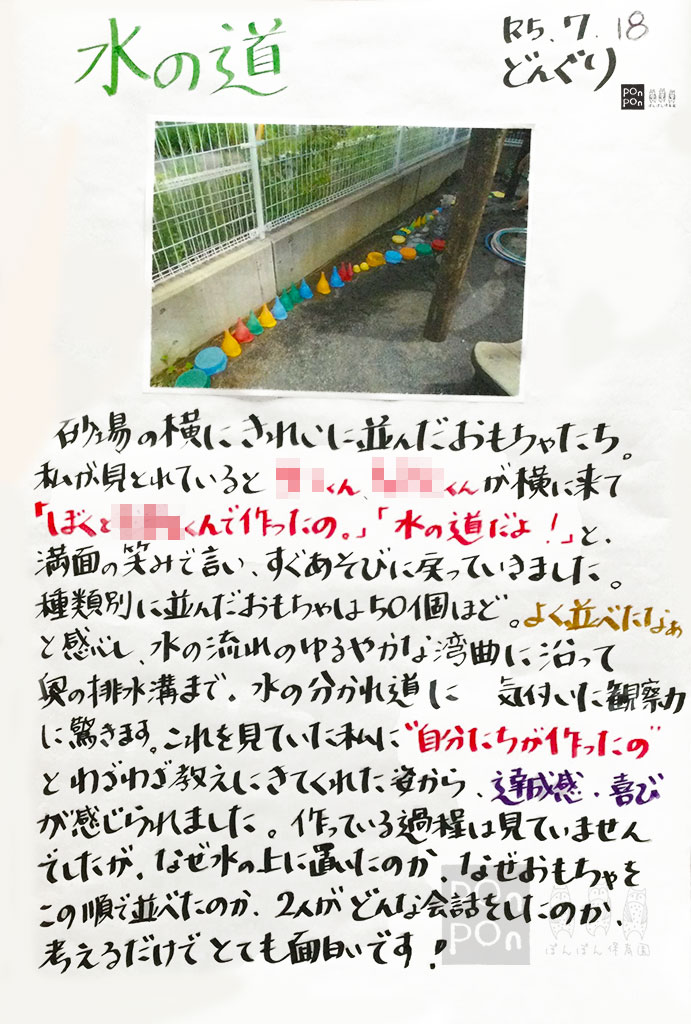 水の道
R5.7.18
どんぐり
pon
pon
ぽんぽん保育園
砂場の横にきれいに並んだおもちゃたち。
私が見とれていると くん、 くんが横に来て
「ぼくと くんで作ったの。」「水の道だよ！」と、
満面の笑みで言い、すぐあそびに戻っていきました。
種類別に並んだおもちゃは50個ほど。よく並べたなぁ
と感心し、水の流れのゆるやかな湾曲に沿って
奥の排水溝まで。水の分かれ道に 気付いた観察力
に驚きます。これを見ていた私に"自分たちが作ったの"
とわざわざ教えにきてくれた姿から、達成感・喜び
が感じられました。作っている過程は見ていません
でしたが、なぜ水の上に置いたのか、なぜおもちゃを
この順で並べたのか、2人がどんな会話をしたのか、
考えるだけでとても面白いです！
pon
pon
ぽんぽん保育園